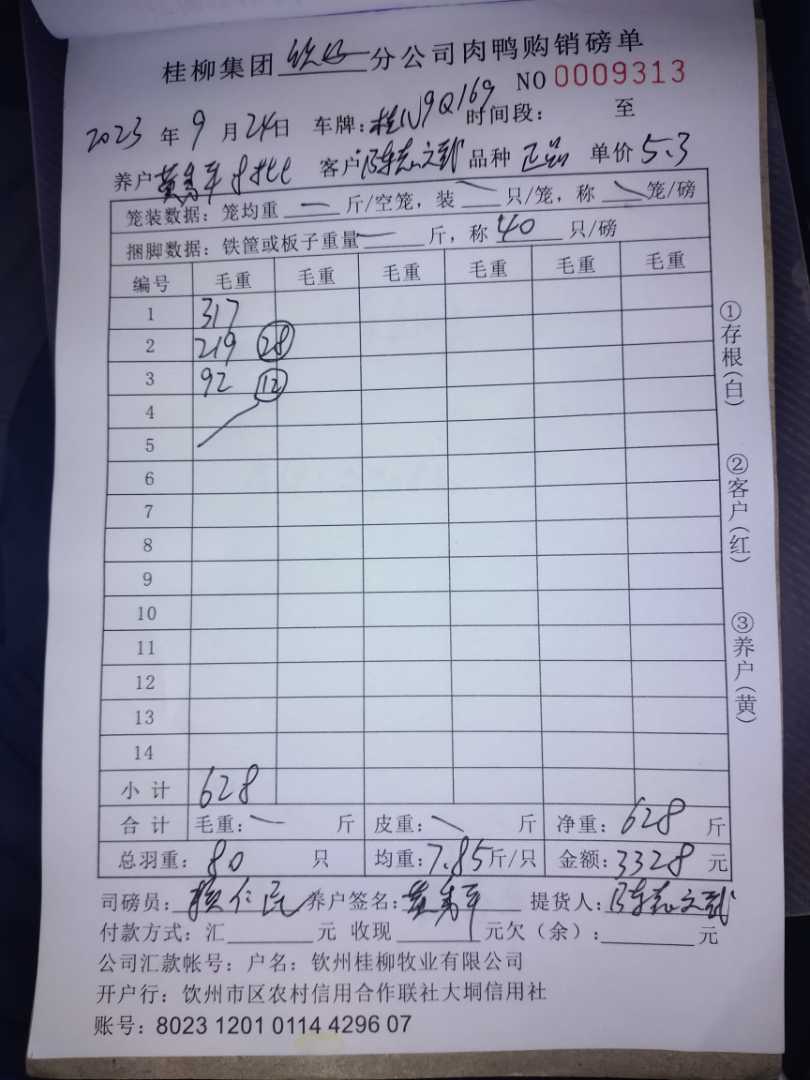 桂柳集团 钦州 分公司肉鸭购销磅单
NO 0009313
2023 年 9 月 24 日 车牌: 桂N9Q169 时间段: 至
养户 黄 平 客户 陈 文 品种 正品 单价 5.3
笼装数据: 笼均重 — 斤/空笼, 装 — 只/笼, 称 — 笼/磅
捆脚数据: 铁筐或板子重量 — 斤, 称 40 只/磅
编号 毛重 毛重 毛重 毛重 毛重 毛重
1 317
2 219 28
3 92 12
4
5
6
7
8
9
10
11
12
13
14
小计 628
合计 毛重: — 斤 皮重: — 斤 净重: 628 斤
总羽重: 80 只 均重: 7.85 斤/只 金额: 3328 元
司磅员: 养户签名: 黄 平 提货人: 陈 文
付款方式: 汇 元 收现 元欠(余): 元
公司汇款帐号: 户名: 钦州桂柳牧业有限公司
开户行: 钦州市区农村信用合作联社大垌信用社
账号: 8023 1201 0114 4296 07
①存根(白)
②客户(红)
③养户(黄)